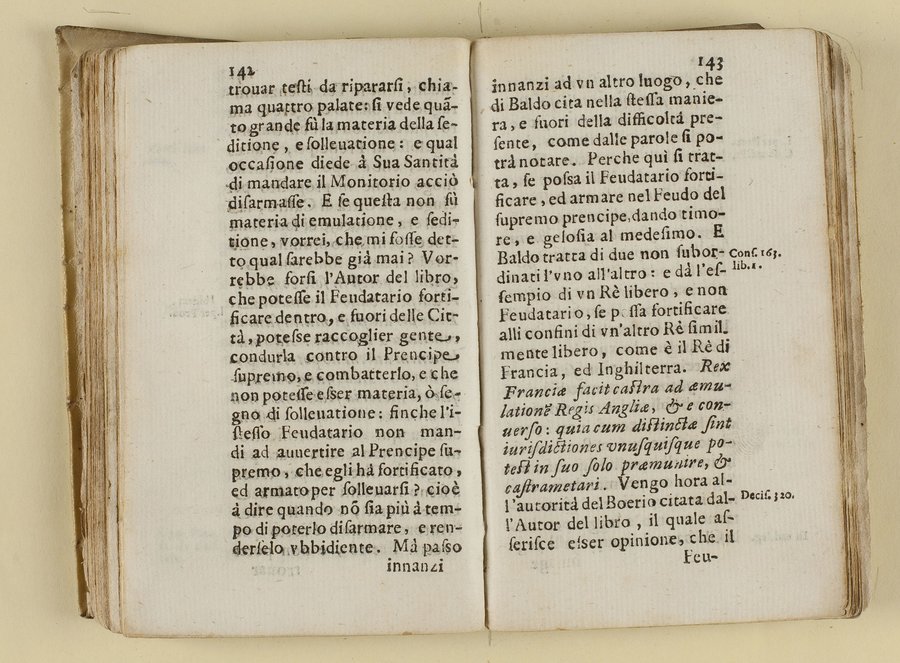 142
trouar teſti da ripararſi, chia-
ma quattro palate: ſi vede quã-
to grande fù la materia della ſe-
ditione, e ſolleuatione: e qual
occaſione diede à Sua Santità
di mandare il Monitorio acciò
diſarmaſſe. E ſe queſta non fù
materia di emulatione, e ſedi-
tione, vorrei, che mi foſſe det-
to qual ſarebbe già mai? Vor-
rebbe forſi l'Autor del libro,
che poteſſe il Feudatario forti-
ficare dentro, e fuori delle Cit-
tà, poteſse raccoglier gente,
condurla contro il Prencipe
ſupremo, e combatterlo, e che
non poteſſe eſser materia, ò ſe-
gno di ſolleuatione: finche l'i-
ſteſſo Feudatario non man-
di ad auuertire al Prencipe ſu-
premo, che egli hà fortificato,
ed armato per ſolleuarſi? cioè
à dire quando nõ ſia più à tem-
po di poterlo diſarmare, e ren-
derſelo vbbidiente. Mà paſſo
innanzi
143
innanzi ad vn altro luogo, che
di Baldo cita nella ſteſſa manie-
ra, e fuori della difficoltà pre-
ſente, come dalle parole ſi po-
trà notare. Perche quì ſi trat-
ta, ſe poſſa il Feudatario forti-
ficare, ed armare nel Feudo del
ſupremo prencipe, dando timo-
re, e geloſia al medeſimo. E
Baldo tratta di due non ſubor-
dinati l'vno all'altro: e dà l'eſ-
ſempio di vn Rè libero, e non
Feudatario, ſe p ſſa fortificare
alli confini di vn'altro Rè ſimil
mente libero, come è il Rè di
Francia, ed Inghilterra. Rex
Franciæ facit caſtra ad æmu-
lationē Regis Angliæ, & e con-
uerſo: quia cum diſtinctæ ſint
iuriſdictiones vnuſquiſque po-
teſt in ſuo ſolo præmunire, &
caſtrametari. Vengo hora al-
l'autorità del Boerio citata dal-
l'Autor del libro, il quale aſ-
ſeriſce eſser opinione, che il
Feu-
Conſ. 163.
lib. 1.
Deciſ. 320.